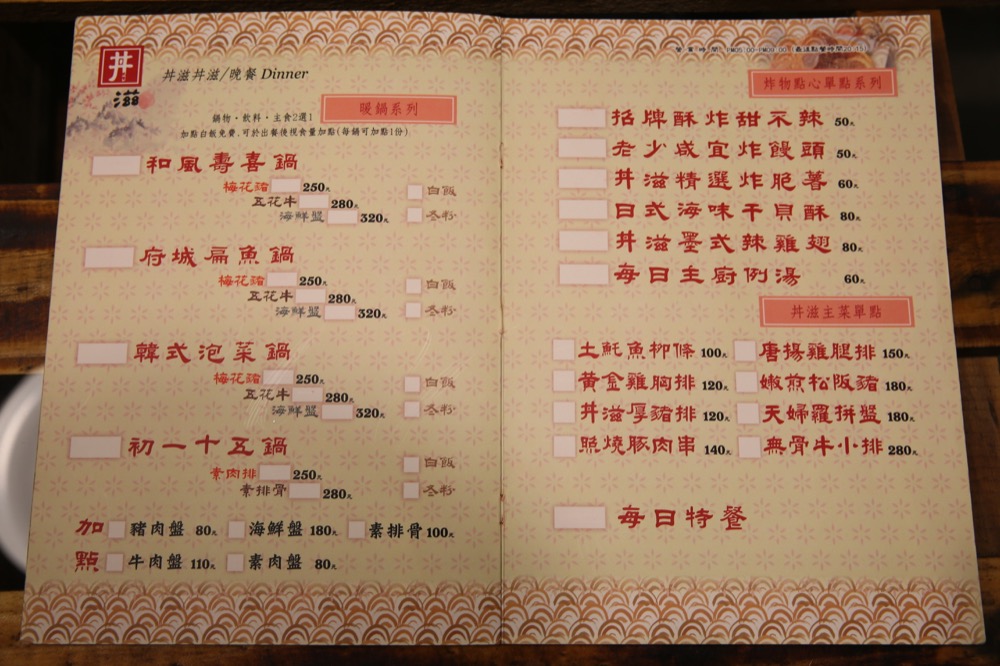 丼
滋
丼滋丼滋/晚餐 Dinner
暖鍋系列
鍋物・飲料・主食2選1
加點白飯免費,可於出餐後視食量加點(每鍋可加點1份)
和風壽喜鍋
梅花豬 250元 白飯
五花牛 280元
海鮮盤 320元 冬粉
府城扁魚鍋
梅花豬 250元 白飯
五花牛 280元
海鮮盤 320元 冬粉
韓式泡菜鍋
梅花豬 250元 白飯
五花牛 280元
海鮮盤 320元 冬粉
初一十五鍋
素肉排 250元 白飯
素排骨 280元 冬粉
加點
豬肉盤 80元 海鮮盤 180元 素排骨 100元
牛肉盤 110元 素肉盤 80元
營業時間 PM05:00-PM09:00 (最後點餐時間20:15)
炸物點心單點系列
招牌酥炸甜不辣 50元
老少咸宜炸饅頭 50元
丼滋精選炸脆薯 60元
日式海味干貝酥 80元
丼滋墨式辣雞翅 80元
每日主廚例湯 60元
丼滋主菜單點
土魠魚柳條 100元 唐揚雞腿排 150元
黃金雞胸排 120元 嫩煎松阪豬 180元
丼滋厚豬排 120元 天婦羅拼盤 180元
照燒豚肉串 140元 無骨牛小排 280元
每日特餐